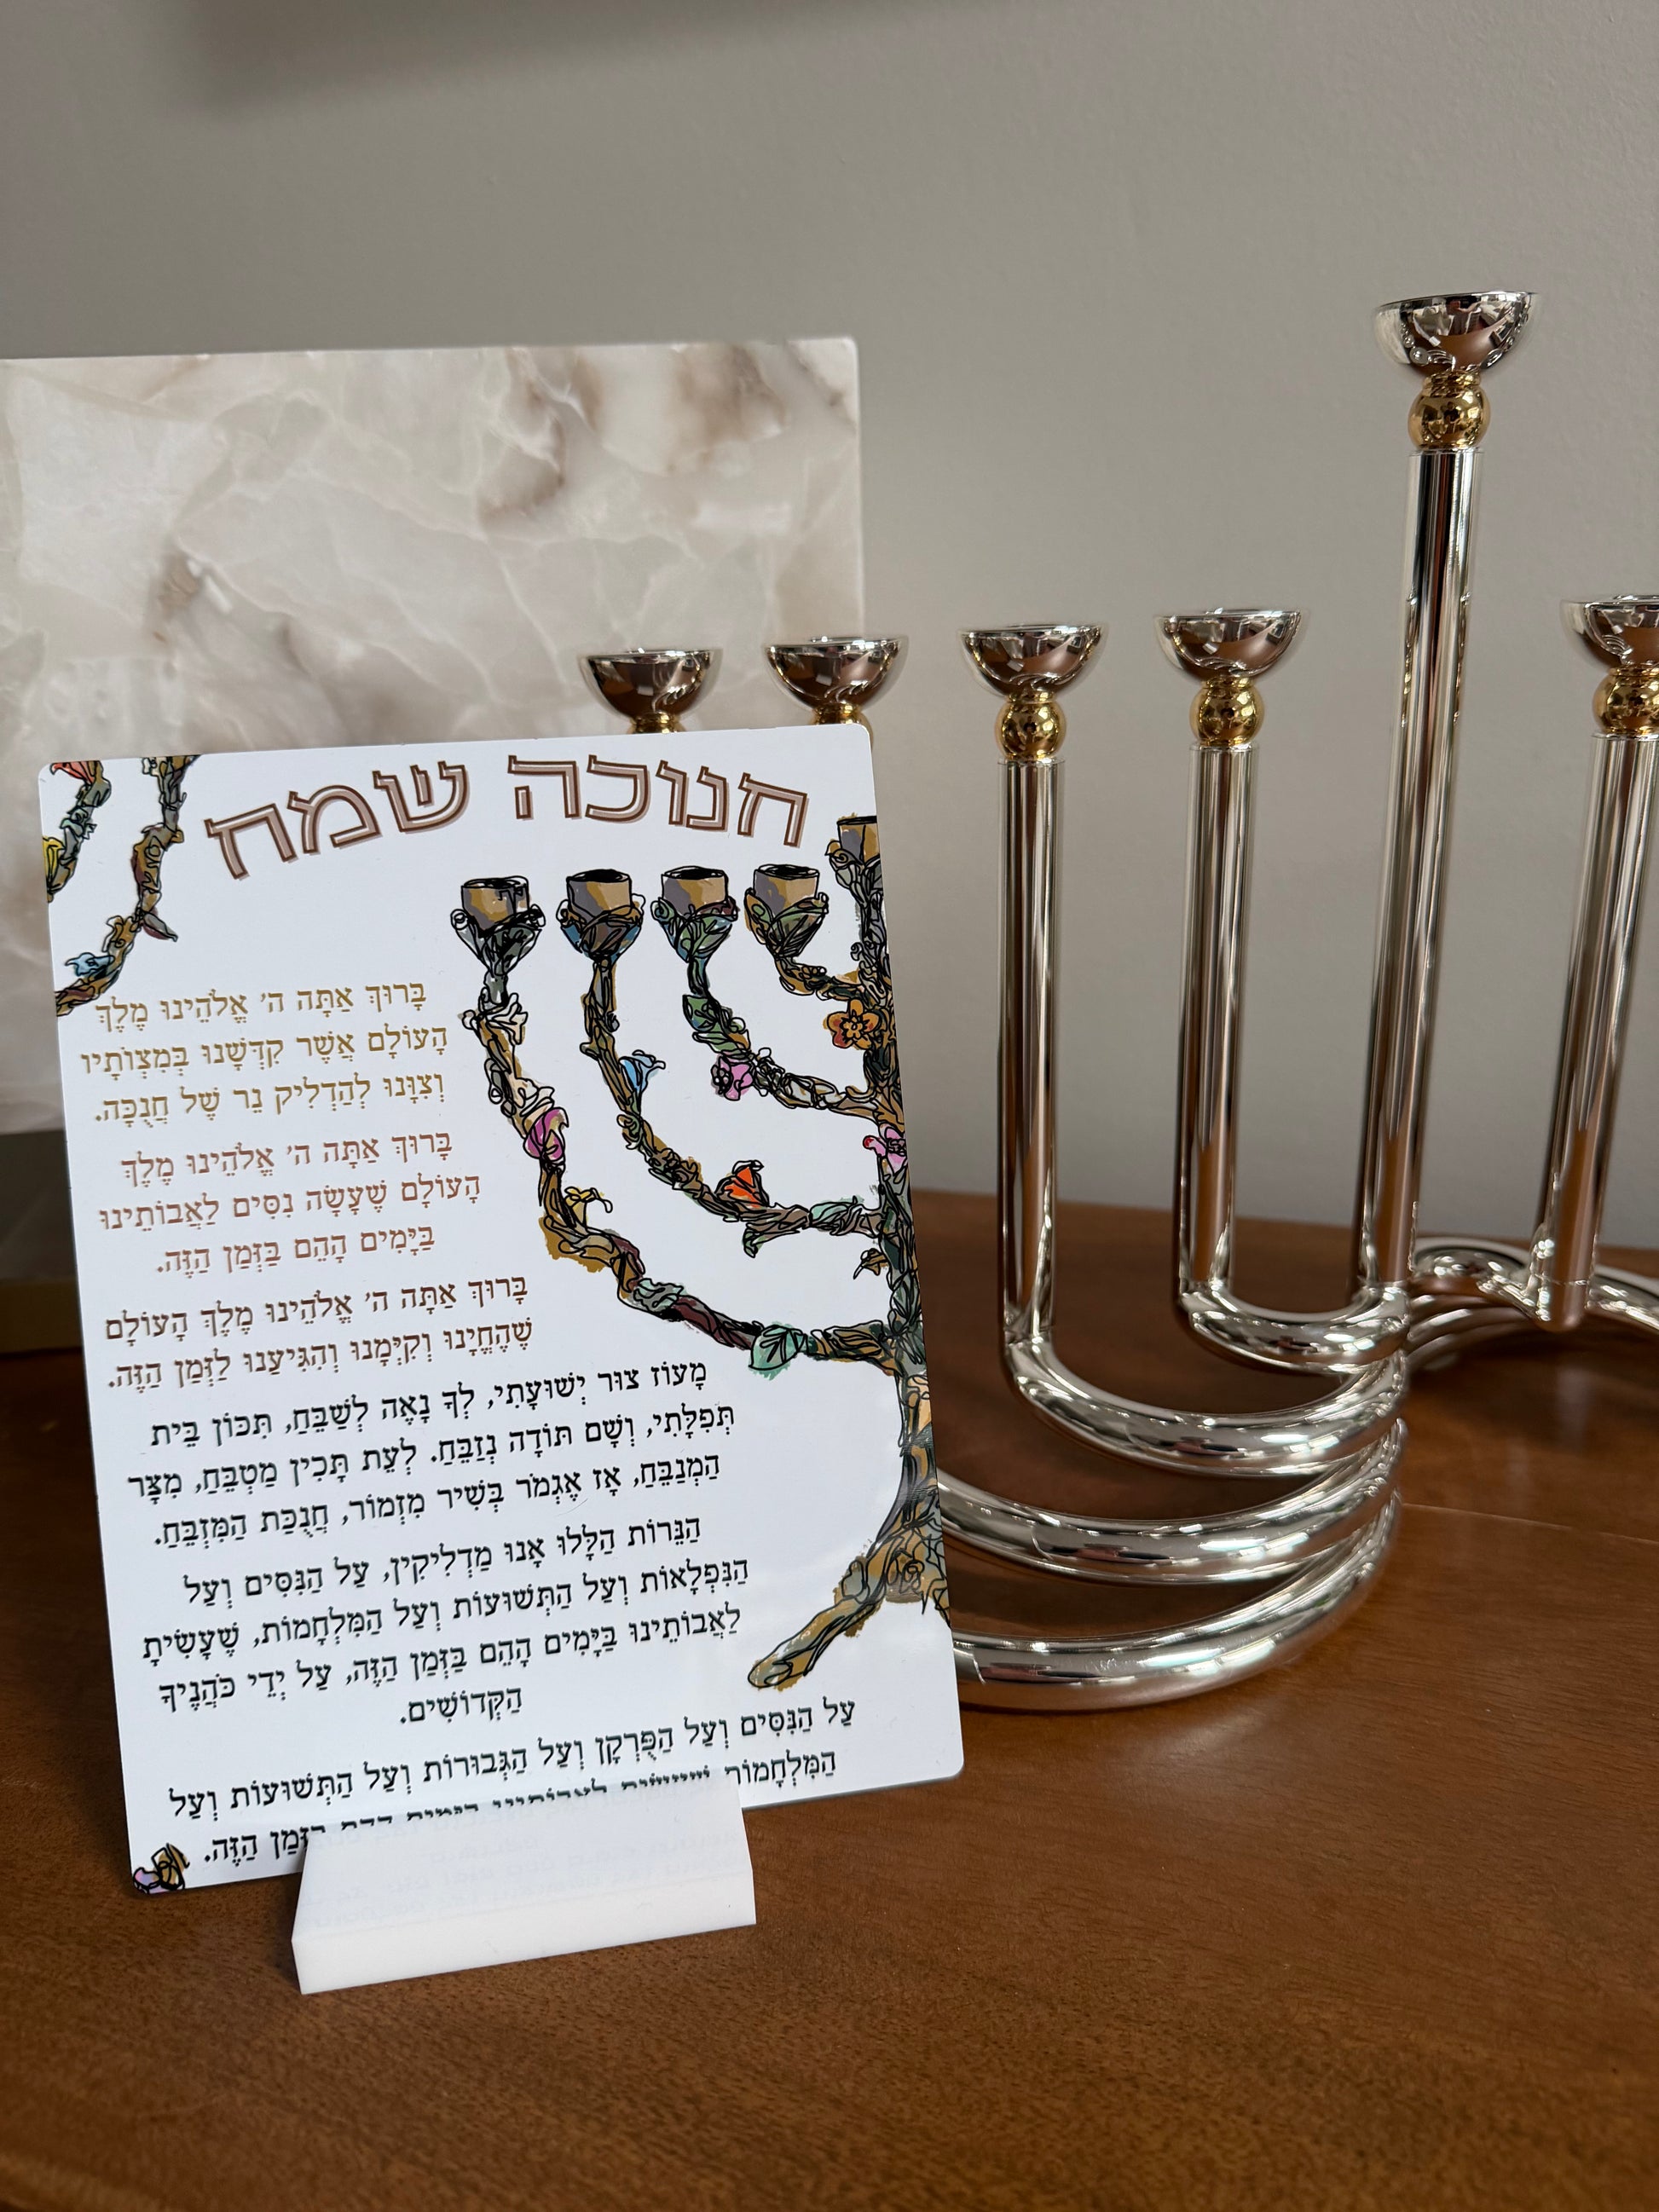 חנוכה שמח
בָּרוּךְ אַתָּה ה' אֱלֹהֵינוּ מֶלֶךְ
הָעוֹלָם אֲשֶׁר קִדְּשָׁנוּ בְּמִצְוֹתָיו
וְצִוָּנוּ לְהַדְלִיק נֵר שֶׁל חֲנֻכָּה.
בָּרוּךְ אַתָּה ה' אֱלֹהֵינוּ מֶלֶךְ
הָעוֹלָם שֶׁעָשָׂה נִסִּים לַאֲבוֹתֵינוּ
בַּיָּמִים הָהֵם בַּזְּמַן הַזֶּה.
בָּרוּךְ אַתָּה ה' אֱלֹהֵינוּ מֶלֶךְ הָעוֹלָם
שֶׁהֶחֱיָנוּ וְקִיְּמָנוּ וְהִגִּיעַנוּ לַזְּמַן הַזֶּה.
מָעוֹז צוּר יְשׁוּעָתִי, לְךָ נָאֶה לְשַׁבֵּחַ, תִּכּוֹן בֵּית
תְּפִלָּתִי, וְשָׁם תּוֹדָה נְזַבֵּחַ. לְעֵת תָּכִין מַטְבֵּחַ, מִצָּר
הַמְנַבֵּחַ, אָז אֶגְמֹר בְּשִׁיר מִזְמוֹר, חֲנֻכַּת הַמִּזְבֵּחַ.
הַנֵּרוֹת הַלָּלוּ אָנוּ מַדְלִיקִין, עַל הַנִּסִּים וְעַל
הַנִּפְלָאוֹת וְעַל הַתְּשׁוּעוֹת וְעַל הַמִּלְחָמוֹת, שֶׁעָשִׂיתָ
לַאֲבוֹתֵינוּ בַּיָּמִים הָהֵם בַּזְּמַן הַזֶּה, עַל יְדֵי כֹּהֲנֶיךָ
הַקְּדוֹשִׁים.
עַל הַנִּסִּים וְעַל הַפֻּרְקָן וְעַל הַגְּבוּרוֹת וְעַל הַתְּשׁוּעוֹת וְעַל
הַמִּלְחָמוֹת
בַּזְּמַן הַזֶּה.